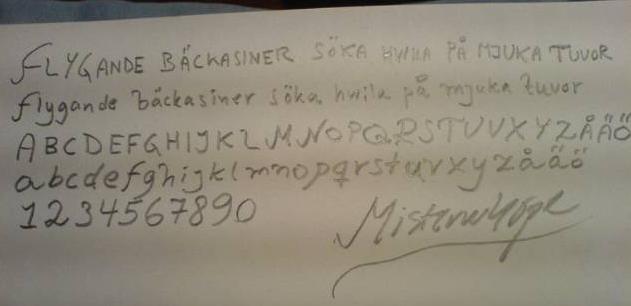 FLYGANDE BÄCKASINER SÖKA HWILA PÅ MJUKA TUVOR
flygande bäckasiner söka hwila på mjuka tuvor
ABCDEFGHIJKLMNOPQRSTUVXYZÅÄÖ
abcdefghijklmnopqrstuvxyzåäö
1234567890